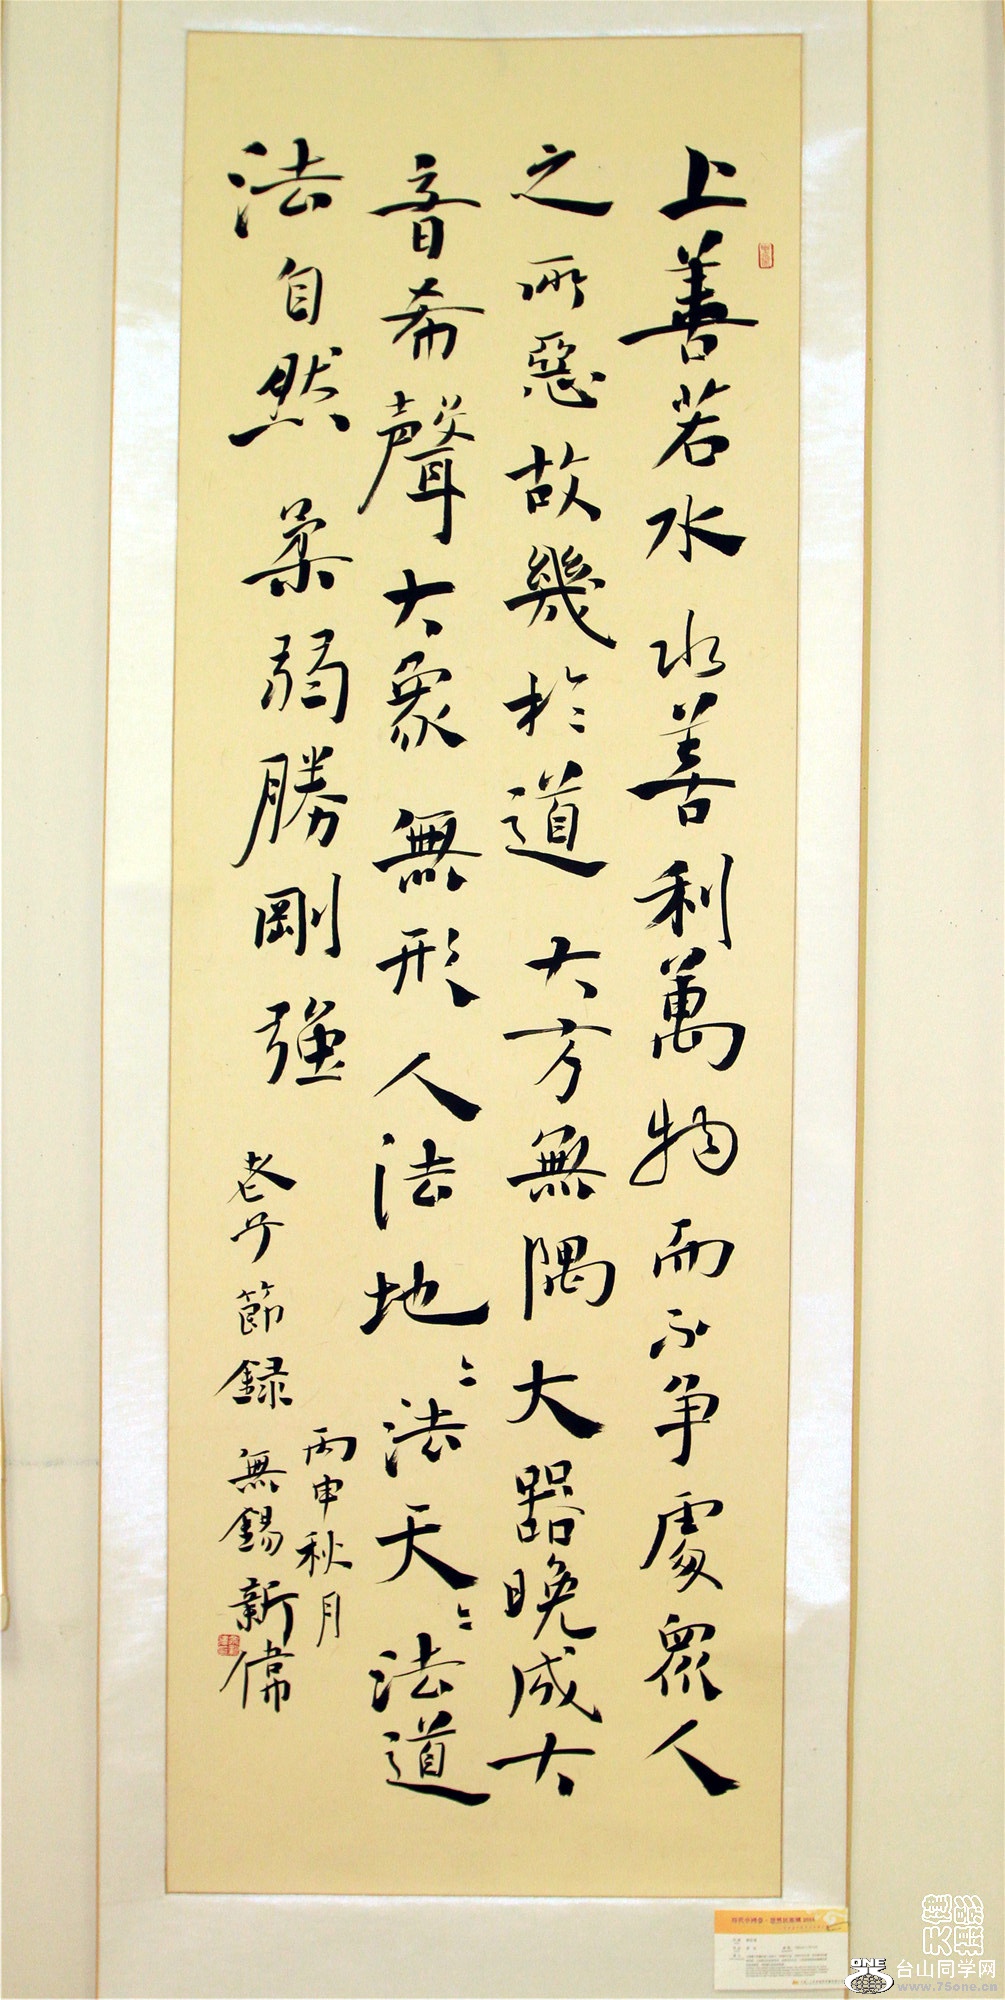 上善若水水善利萬物而不争處眾人
之所惡故幾於道大方無隅大器晚成大
音希聲大象無形人法地〻法天〻法道
法自然柔弱勝剛強
老子節録
丙申秋月
無錫新偉
ONE
台山同学网
www.75one.cn